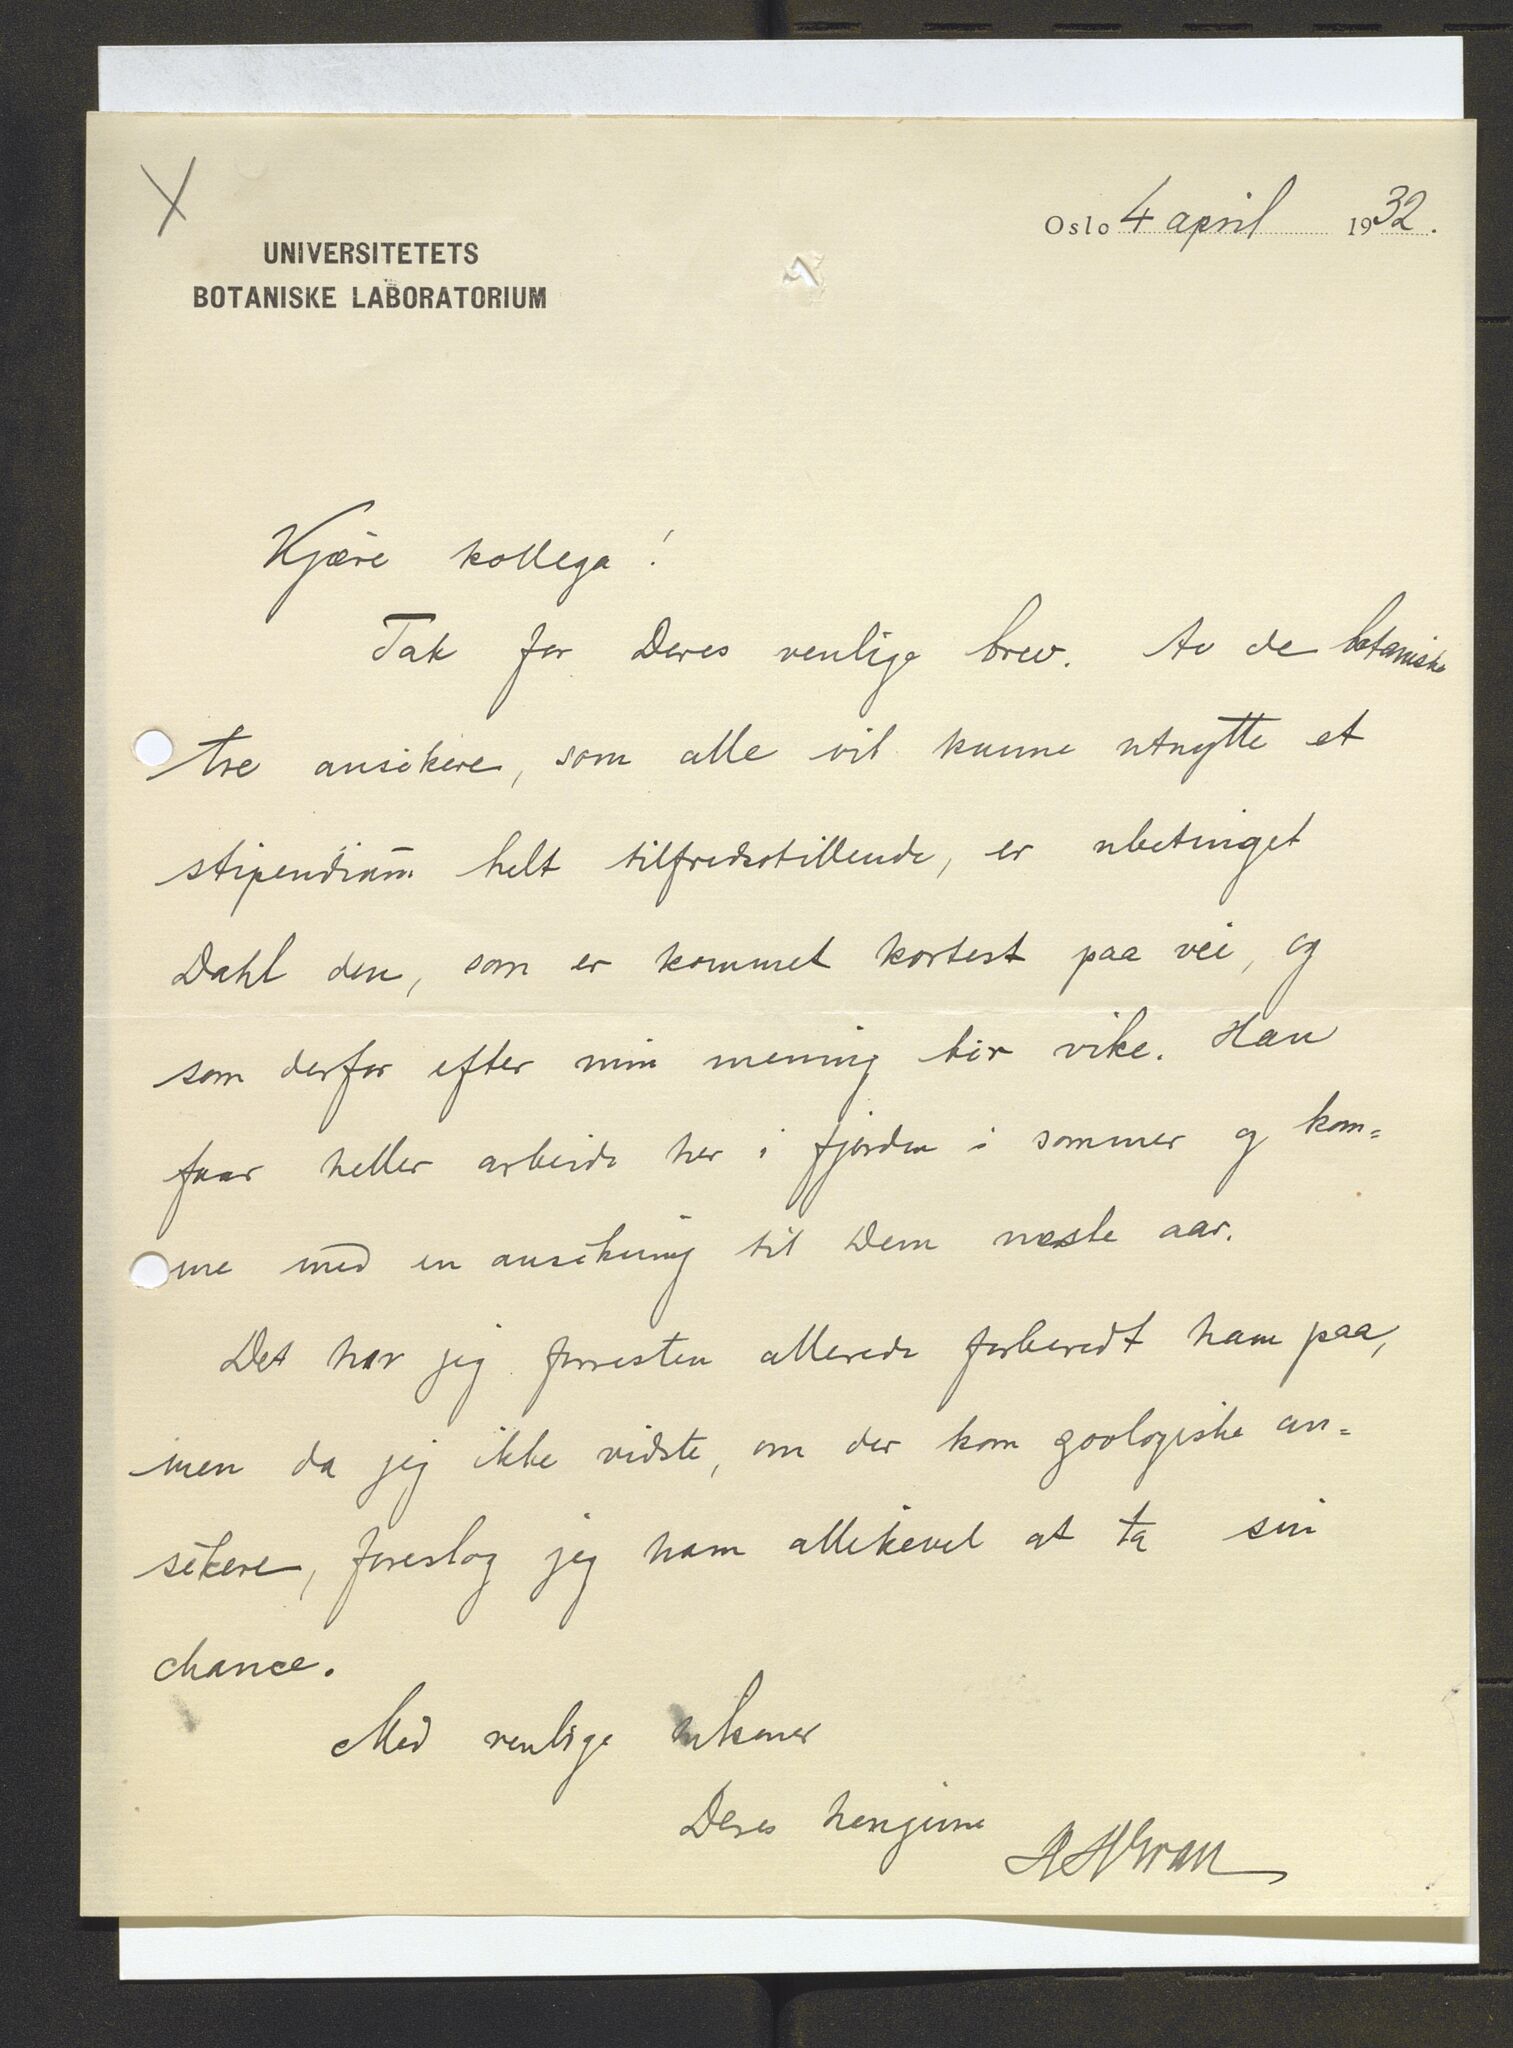 Oslo 4 april 1932.
UNIVERSITETETS
BOTANISKE LABORATORIUM
Kjære kollega!
Tak for Deres venlige brev. Av de botaniske
tre ansøkere, som alle vil kunne utnytte et
stipendium helt tilfredsstillende, er ubetinget
Dahl den, som er kommet kortest paa vei, og
som derfor efter min mening bør vike. Han
faar heller arbeide her i fjorden i sommer og kom=
me med en ansøkning til Dem næste aar.
Det har jeg forresten allerede forberedt ham paa,
men da jeg ikke vidste, om der kom zoologiske an=
søkere, foreslog jeg ham allikevel at ta sin
chance.
Med venlige hilsener
Deres hengivne
H H Gran